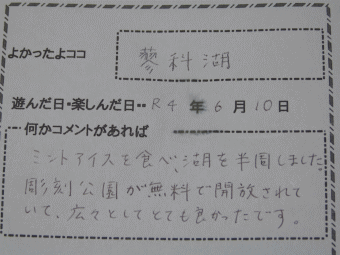 よかったよココ 蓼科湖
遊んだ日・楽しんだ日・・ R4 年 6 月 10 日
何かコメントがあれば
ミントアイスを食べ、湖を半周しました。
彫刻公園が無料で開放されて
いて、広々としてとても良かったです。